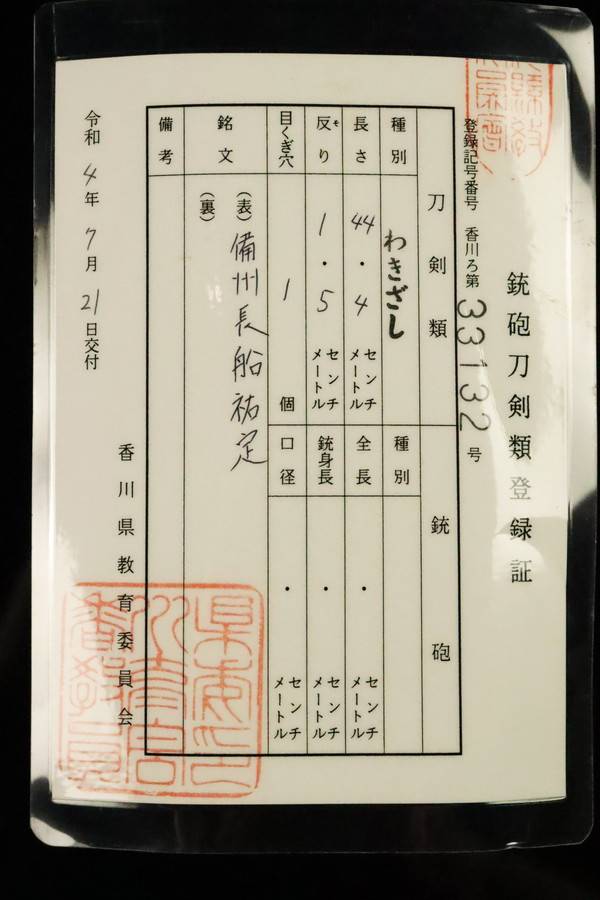 銃砲刀剣類登録証
登録記号番号 香川ろ第33132号
刀剣類
種別 わきざし
長さ 44・4 センチメートル
反り 1・5 センチメートル
モ
目くぎ穴 1 個
銘文 (表) 備州長船祐定
(裏)
備考
銃砲
種別
全長 ・ センチメートル
銃身長 ・ センチメートル
口径 ・ センチメートル
令和4年7月21日交付
香川県教育委員会